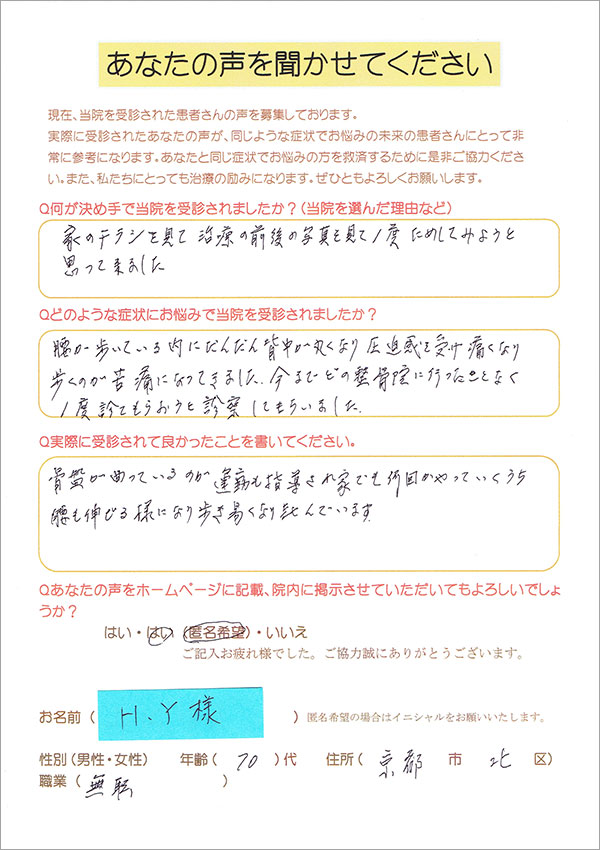 あなたの声を聞かせてください
現在、当院を受診された患者さんの声を募集しております。
実際に受診されたあなたの声が、同じような症状でお悩みの未来の患者さんにとって非
常に参考になります。あなたと同じ症状でお悩みの方を救済するために是非ご協力くださ
い。また、私たちにとっても治療の励みになります。ぜひともよろしくお願いします。
Q何が決め手で当院を受診されましたか？(当院を選んだ理由など)
家のチラシを見て 治療の前後の写真を見て1度ためしてみようと
思って来ました
Qどのような症状にお悩みで当院を受診されましたか？
腰が歩いている内にだんだん背中が丸くなり圧迫感を受け痛くなり
歩くのが苦痛になってきました.今までどの整骨院に行ったことなく
1度診てもらおうと診察してもらいました.
Q実際に受診されて良かったことを書いてください。
骨盤が曲っているのが運動も指導され家でも何回かやっていくうち
腰も伸びる様になり歩き易くなり喜んでいます
Qあなたの声をホームページに記載、院内に掲示させていただいてもよろしいでしょ
うか？
はい・はい(匿名希望)・いいえ
ご記入お疲れ様でした。ご協力誠にありがとうございます。
お名前( H.Y様 )匿名希望の場合はイニシャルをお願いいたします。
性別(男性・女性) 年齢( 70 )代 住所( 京都 市 北 区)
職業( 無職 )